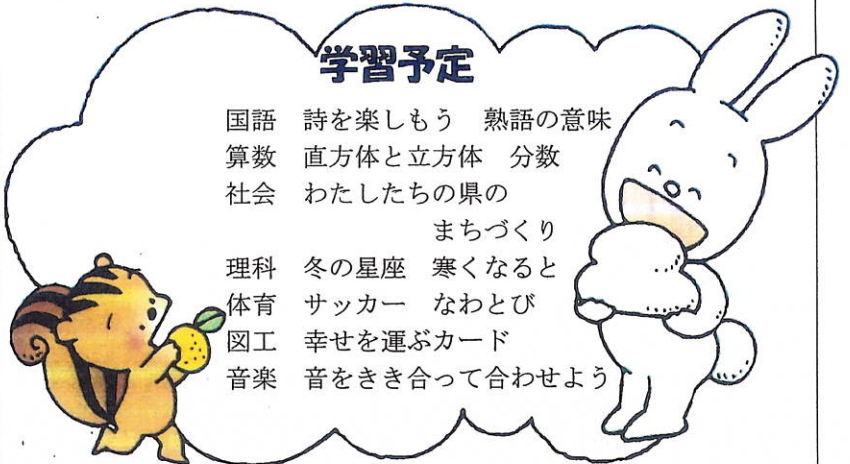 学習予定
国語　詩を楽しもう　熟語の意味
算数　直方体と立方体　分数
社会　わたしたちの県の
まちづくり
理科　冬の星座　寒くなると
体育　サッカー　なわとび
図工　幸せを運ぶカード
音楽　音をきき合って合わせよう